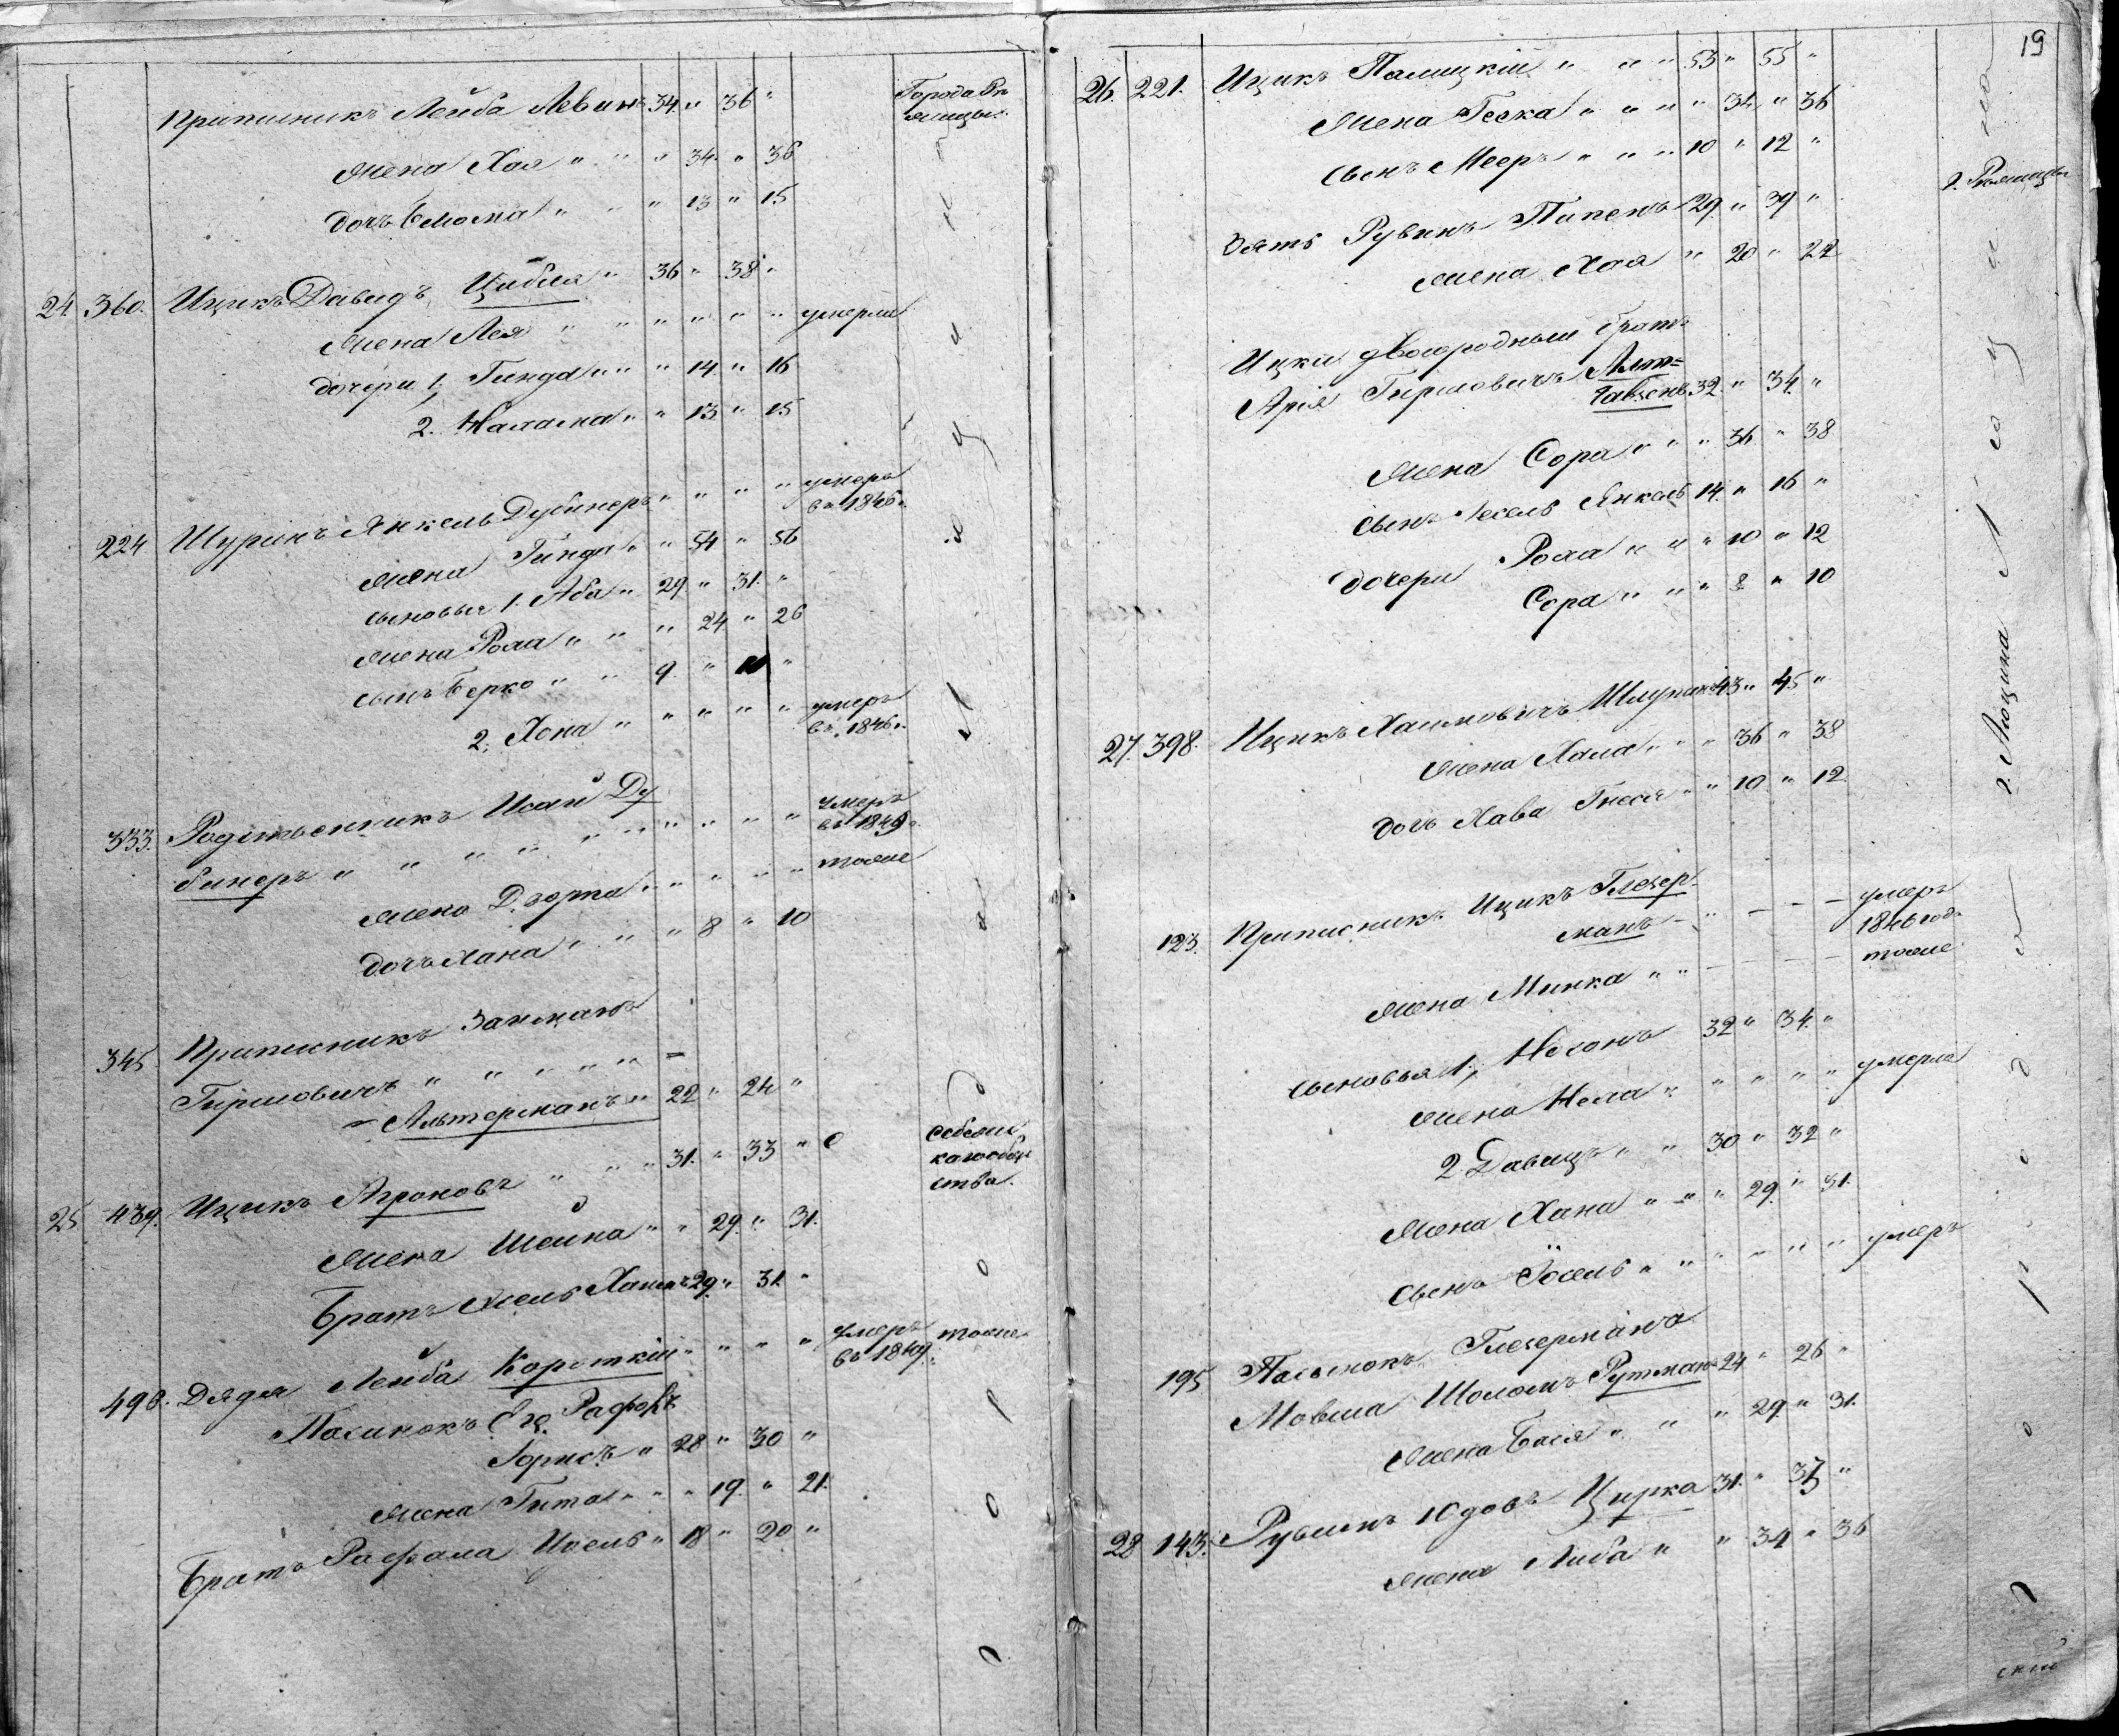 Приписникъ Лейба Левинъ 34. " 36 " Города Рѣ
жицы
жена Хая " " " 34. " 36
дочь Смолка " " " 13 " 15
24. 360. Ицикъ Давидъ Цибля " 36 " 38 "
жена Лея " " " " " " умерли
дочери 1, Гинда " " " 14. " 16
2. Нахама " " 13 " 15
224 Шуринъ Янкель Дубинеръ " " " " умеръ
въ 1846 г.
жена Гинда " " 54 " 56
сыновья 1. Аба " 29 " 31. "
жена Роха " " " 24 " 26
сынъ Берко " " 9. " 11 "
2, Хона " " " " " умеръ
въ 1846 г.
333. Родственникъ Исай Ду
бинеръ " " " " " " " " " умеръ
въ 1849 г.
жена Дворта " " " " " тоже
дочь Хана " " " 8 " 10
345 Приписникъ Залманъ
Гиршовичъ " " " " "
Альтерманъ " 22 " 24 "
25 439. Ицикъ Ароновъ " " " 31. " 33 " Себежс
каго обще
ства.
жена Шейна " " 29. " 31.
Братъ Хаимъ 29. " 31. "
498. Дядя Лейба Короткій " " " " умеръ
въ 1849. тоже
Пасынокъ Его Рафоль
Борисъ " 28 " 30 "
жена Гита " " " 19. " 21.
Братъ Рафала Иоель " 18 " 20 "
19
26. 221. Ицикъ Палицкій " " " 53 " 55 "
жена Геска " " " " 34. " 36
сынъ Мееръ " " " 10 " 12 "
Зять Рувинъ Типенъ 29. " 39 " г. Рѣжицы
жена Хая " 20 " 22
Ицки двоюродный братъ
Арія Гиршовичъ Альт=
гавзенъ 32. " 34. "
жена Сора " " " 36 " 38
сынъ Янкель 14. " 16 "
дочери Роха " " " 10 " 12
Сора " " " 8 " 10
27. 398. Ицикъ Хаимовичъ 43 " 45 "
жена Хана " " " 36 " 38
дочь Хава Гнеся " " 10. " 12
г. Люцина
123. Приписникъ Ицикъ Глезер
манъ - " - - - умеръ
1846 год.
жена Минка " " - - - - тоже
сыновья 1, Носонъ 32 " 34. "
жена Неха " " " " " умерла
2 Давидъ " " 30 " 32 "
жена Хана " " " 29. " 31.
сынъ Іосель " " " " " " умеръ
195 Пасынокъ Глезермана
Мовша Шоломъ Рутманъ 24 " 26 "
жена Бася " " " 29. " 31.
28 143. Рувинъ Юдовъ Цирка 31. " 33 "
жена Либа " " 34 " 36